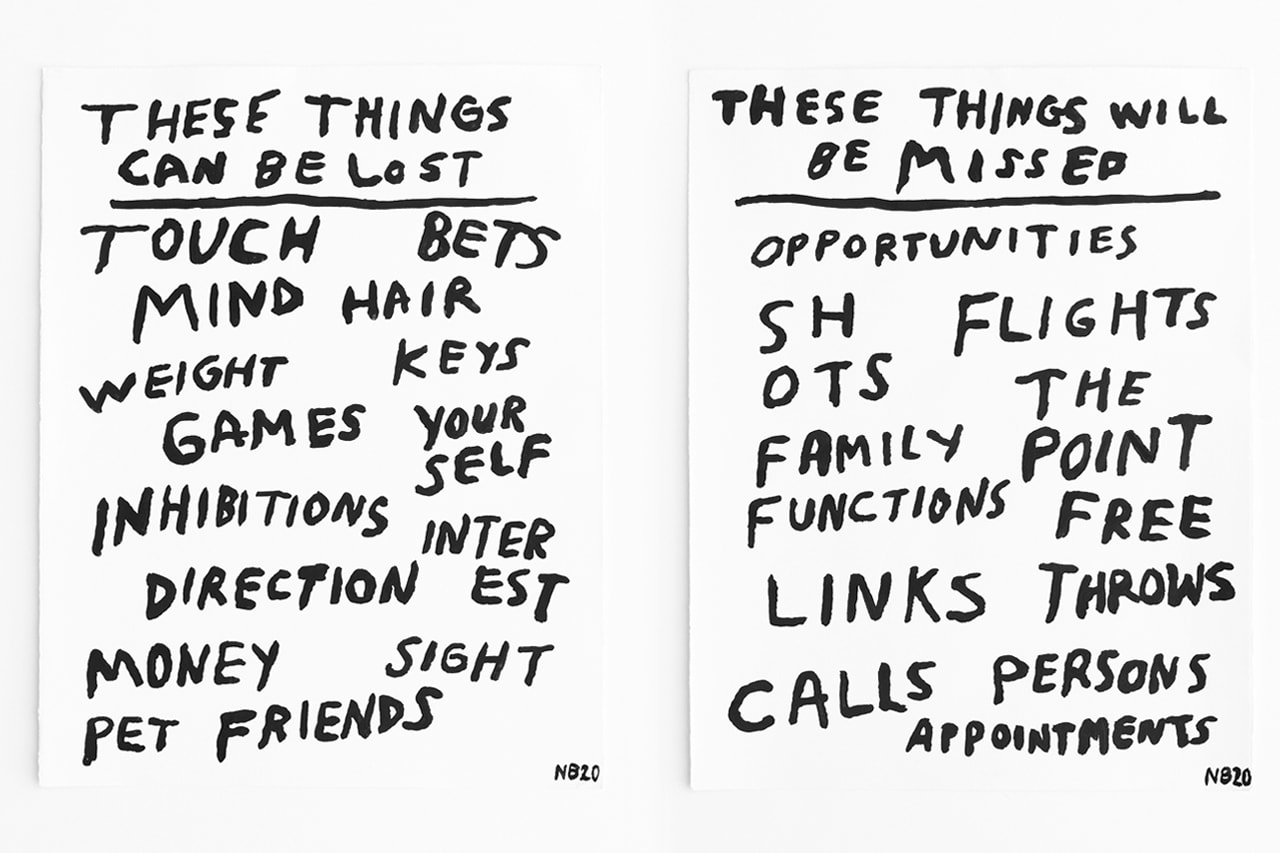 THESE THINGS
CAN BE LOST
TOUCH BETS
MIND HAIR
WEIGHT KEYS
GAMES YOUR
SELF
INHIBITIONS
INTER
DIRECTION EST
MONEY SIGHT
PET FRIENDS
NB20
THESE THINGS WILL
BE MISSED
OPPORTUNITIES
SH FLIGHTS
OTS THE
FAMILY POINT
FUNCTIONS FREE
LINKS THROWS
CALLS PERSONS
APPOINTMENTS
NB20